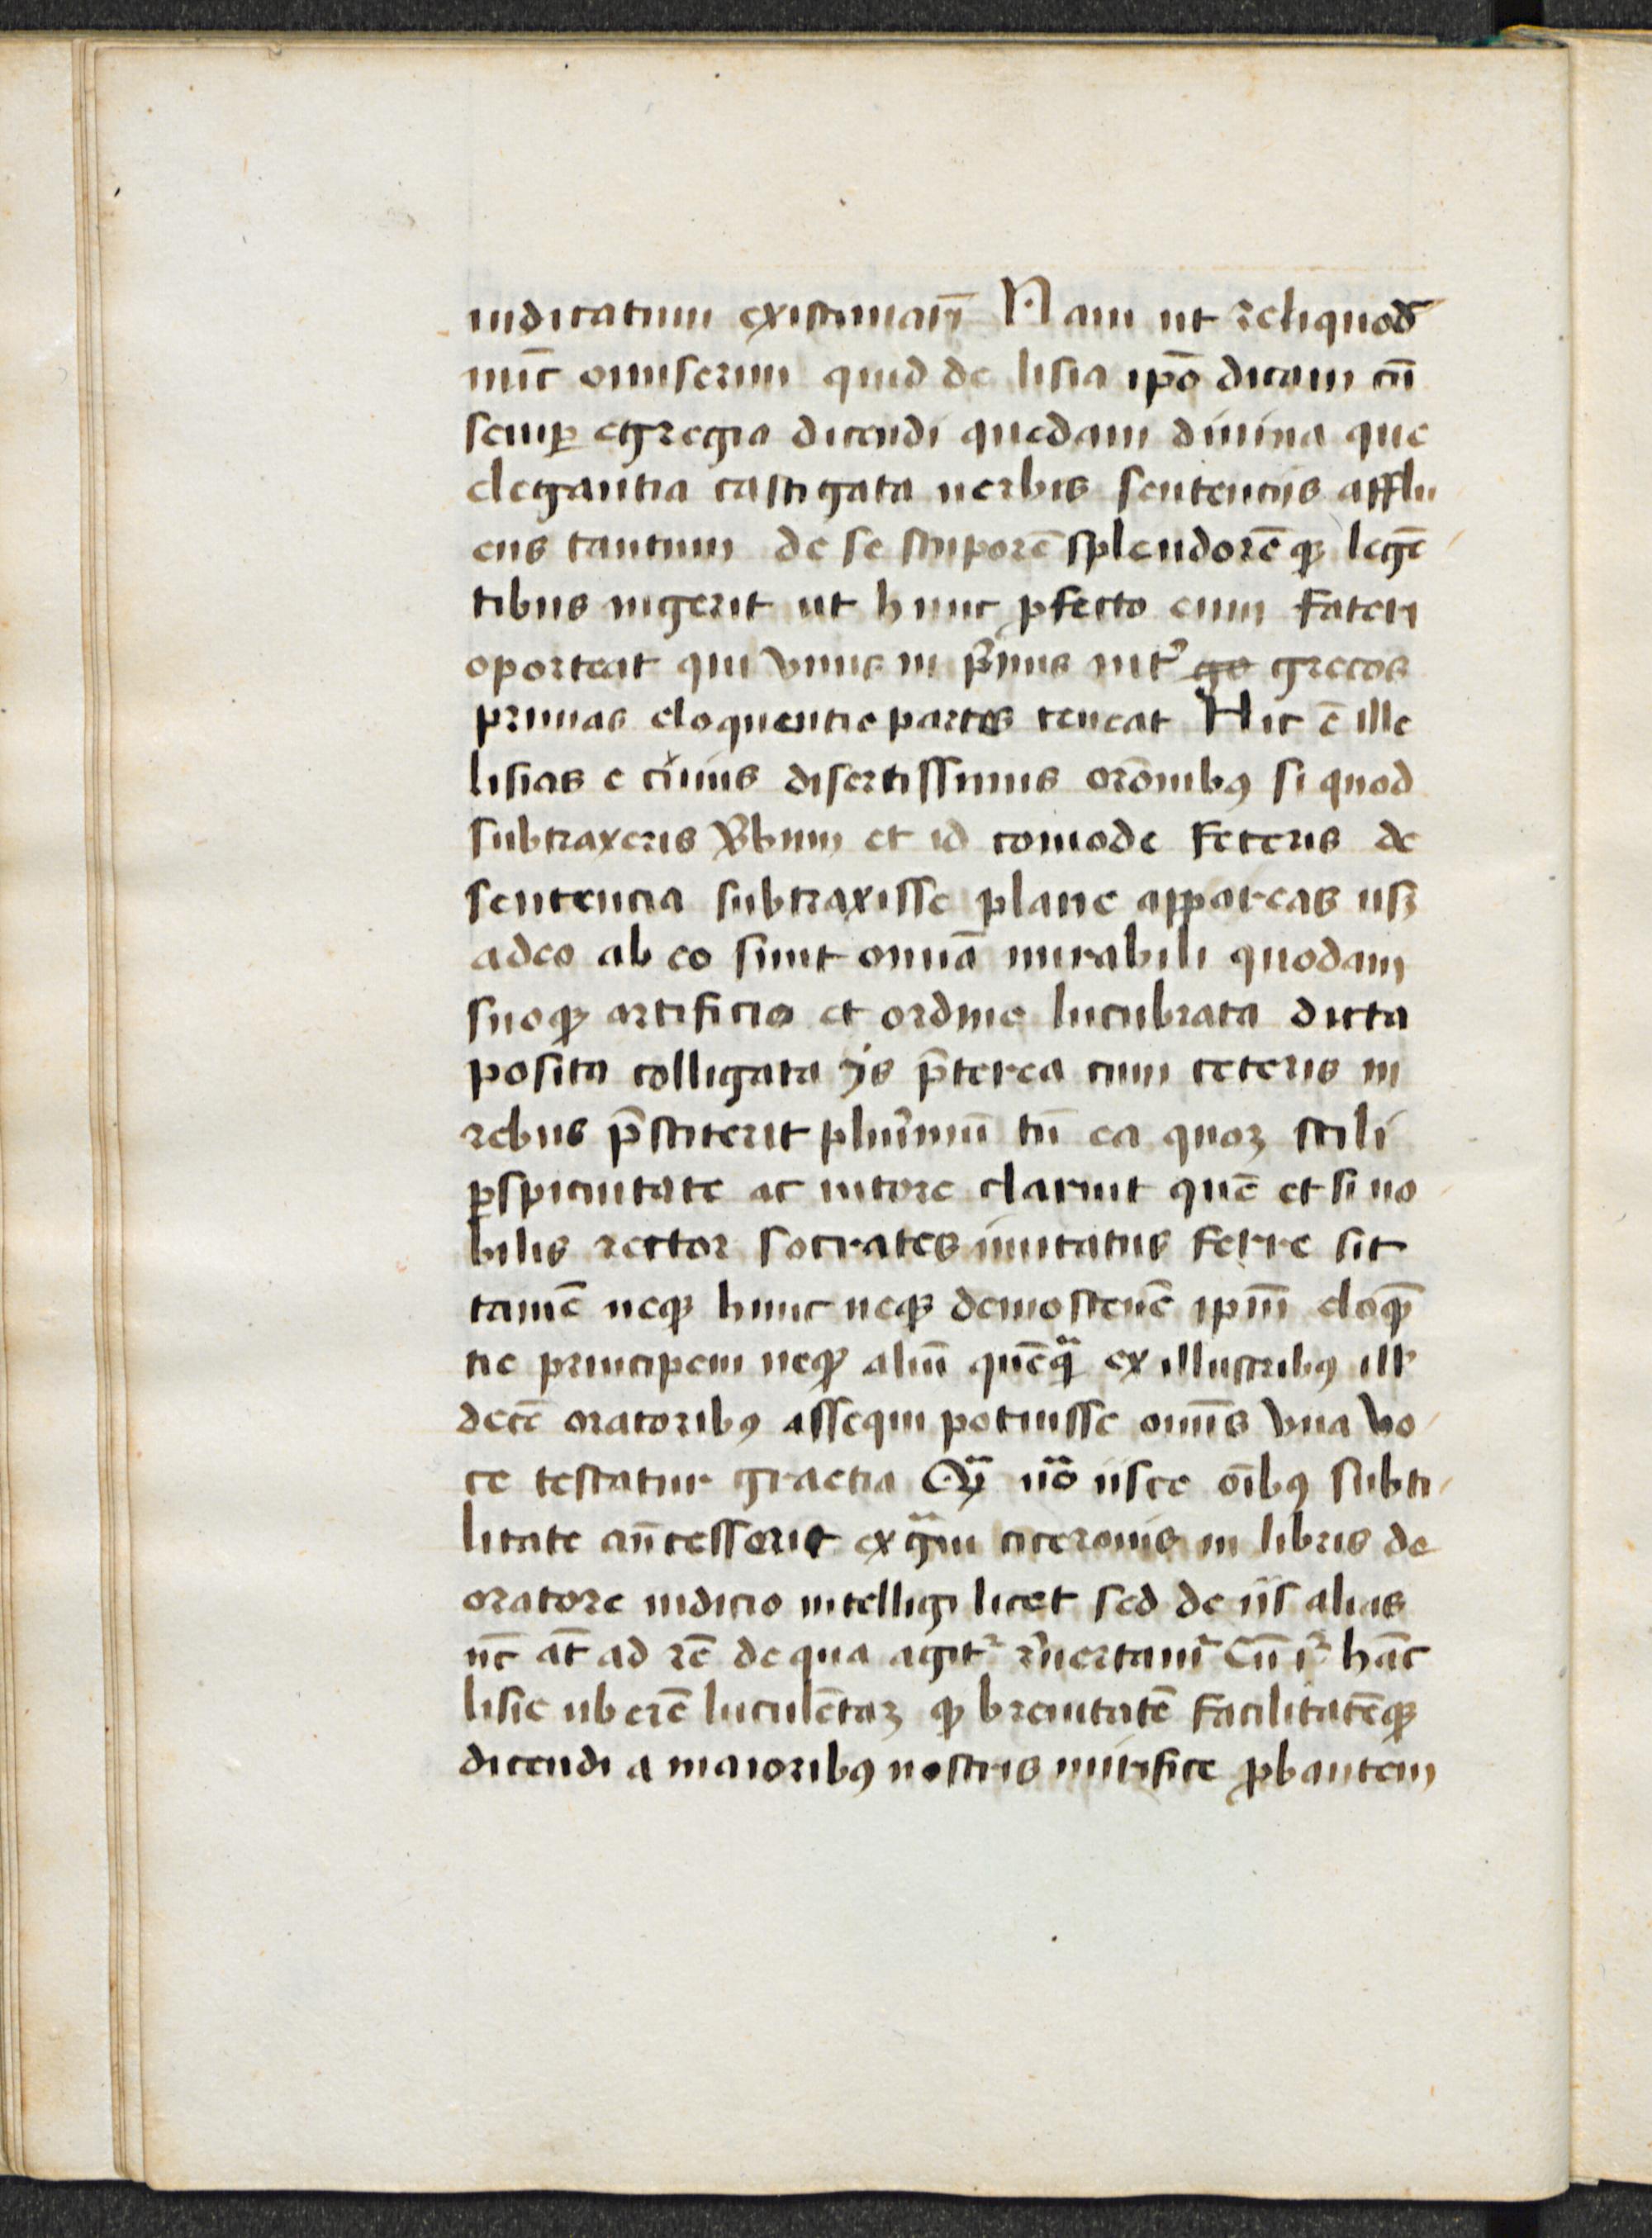 iudicatum existimaūj Nam ut reliquos
nūc omiserim quid de lisia ip̄o dicam cū
semꝑ egregia dicendi quedam diuina que
elegantia castigata uerbis sentenciis afflu
ens tantum de se stuporē splendorēqꝫ legē
tibus ingerit ut hunc ꝓfecto eum fateri
oporteat qui vnus in p̄mis int᷑ ge grecos
primas eloquentie partes teneat Hic ē ille
lisias e cuius disertissimis orōnibꝯ si quod
subtraxeris v̄bum et id comode feceris de
sentencia subtraxisse plane appareas usꝫ
adeo ab eo sunt omīa mirabili quodam
suoqꝫ artificio et ordine lucubrata dicta
posita colligata ijs p̄terea cum ceteris in
rebus p̄stiterit plurimū tū ea quoꝫ stili
ꝑspicuitate ac nitore claruit quē et si no
bilis rector socrates imitatus ferre sit
tamē neqꝫ hunc neqꝫ demostenē ip̄m eloqē
tie principem neqꝫ aliū quēqᷓ ex illustribꝯ ill᷑
decē oratoribꝯ assequi potuisse omīs vna vo
ce testatur graecia Qᷓ uᷓo iisce oībꝯ subti
litate an̄cesserit ex qᷓm ciceronis in libris de
oratore iudicio intelligi licet sed de iis alias
nc̄ at̄ ad rē de qua agit᷑ reuertam᷑ Cū i᷑ hāc
lisie uberē luculētaꝫ qꝫ breuitatē facilitatēqꝫ
dicendi a maioribꝯ nostris mirifice ꝓbantem